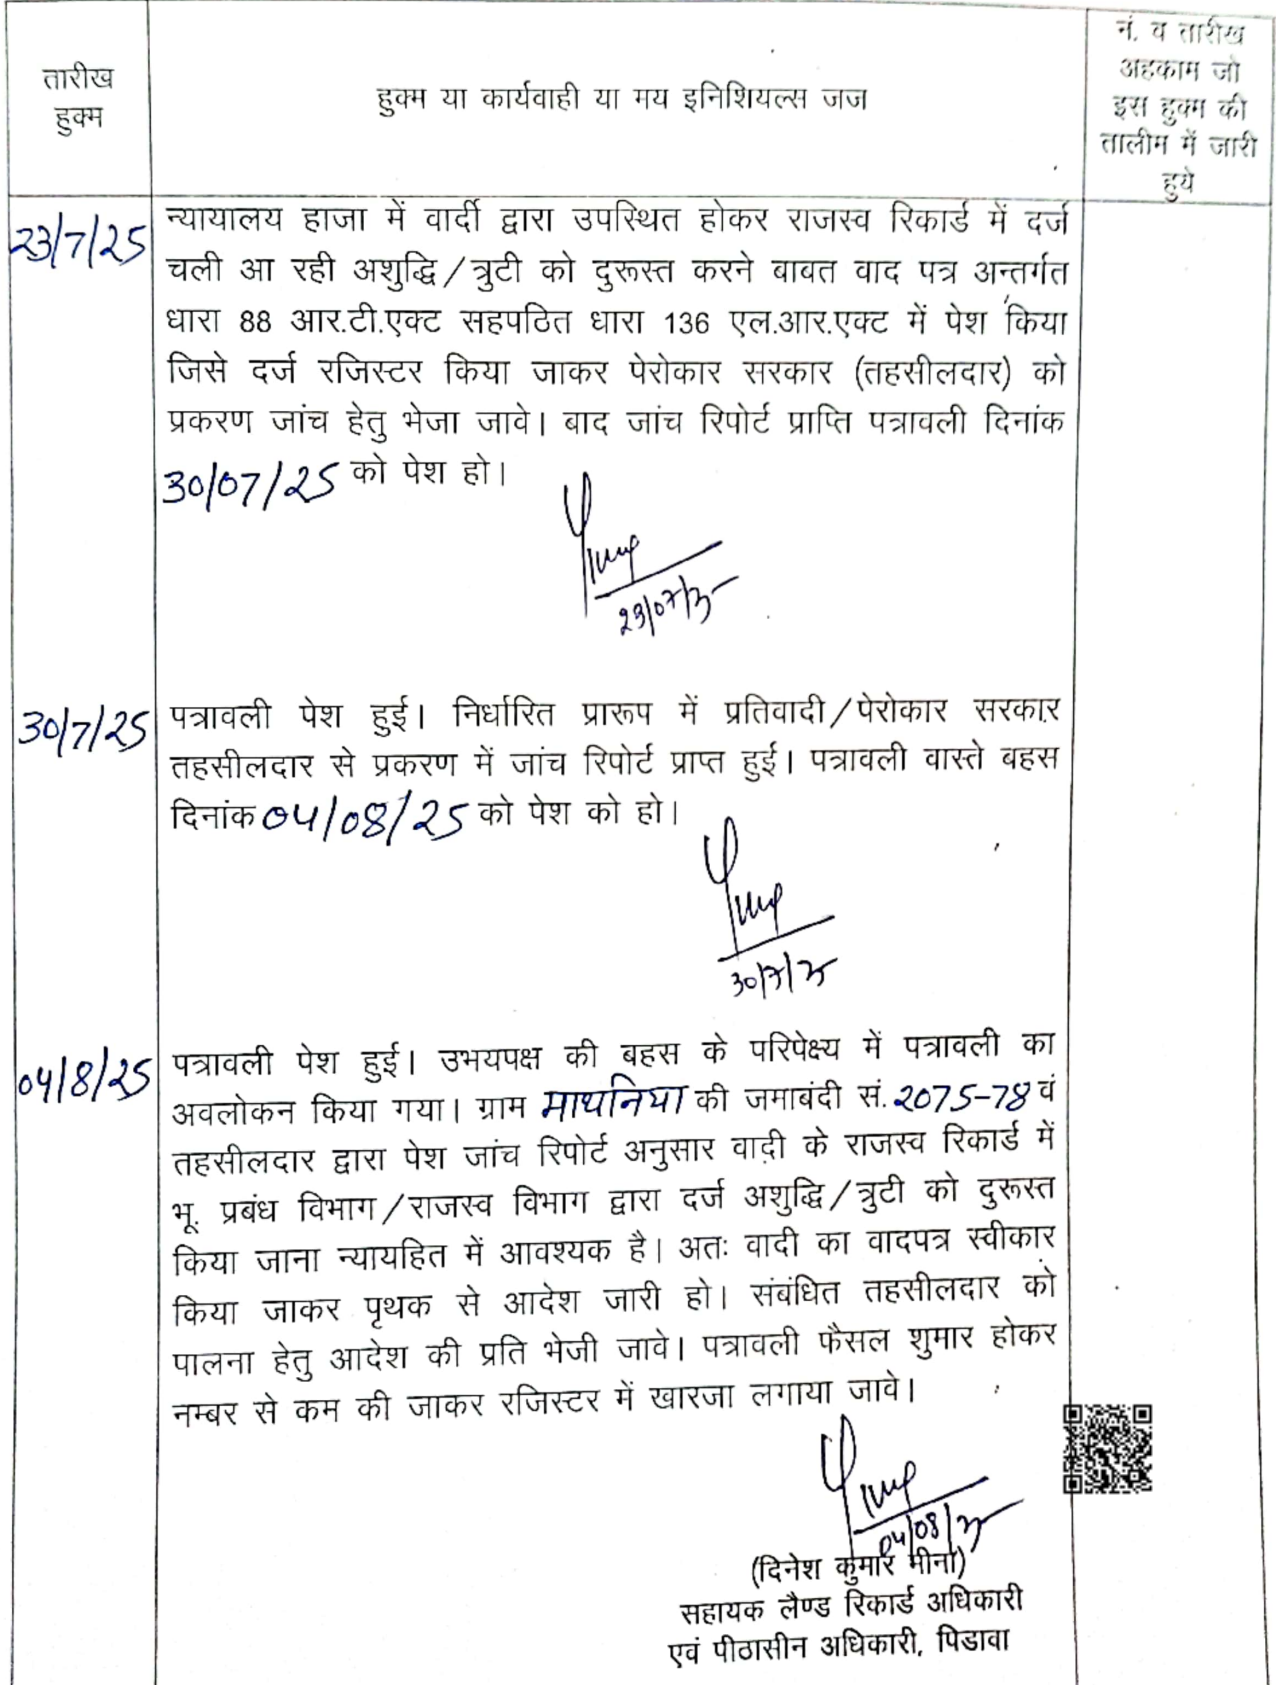 तारीख
हुक्म
हुक्म या कार्यवाही या मय इनिशियल्स जज
नं. व तारीख
अहकाम जो
इस हुक्म की
तालीम में जारी
हुये
23/7/25
न्यायालय हाजा में वार्दी द्वारा उपस्थित होकर राजस्व रिकार्ड में दर्ज
चली आ रही अशुद्धि/त्रुटी को दुरूस्त करने बाबत वाद पत्र अन्तर्गत
धारा 88 आर.टी.एक्ट सहपठित धारा 136 एल.आर.एक्ट में पेश किया
जिसे दर्ज रजिस्टर किया जाकर पेरोकार सरकार (तहसीलदार) को
प्रकरण जांच हेतु भेजा जावे। बाद जांच रिपोर्ट प्राप्ति पत्रावली दिनांक
30/07/25 को पेश हो।
23/07/25
30/7/25
पत्रावली पेश हुई। निर्धारित प्रारूप में प्रतिवादी/पेरोकार सरकार
तहसीलदार से प्रकरण में जांच रिपोर्ट प्राप्त हुई। पत्रावली वास्ते बहस
दिनांक 04/08/25 को पेश को हो।
30/7/25
04/8/25
पत्रावली पेश हुई। उभयपक्ष की बहस के परिपेक्ष्य में पत्रावली का
अवलोकन किया गया। ग्राम माथनिया की जमाबंदी सं. 2075-78 वं
तहसीलदार द्वारा पेश जांच रिपोर्ट अनुसार वादी के राजस्व रिकार्ड में
भू. प्रबंध विभाग/राजस्व विभाग द्वारा दर्ज अशुद्धि/त्रुटी को दुरूस्त
किया जाना न्यायहित में आवश्यक है। अतः वादी का वादपत्र स्वीकार
किया जाकर पृथक से आदेश जारी हो। संबंधित तहसीलदार को
पालना हेतु आदेश की प्रति भेजी जावे। पत्रावली फैसल शुमार होकर
नम्बर से कम की जाकर रजिस्टर में खारजा लगाया जावे।
04/08/25
(दिनेश कुमार मीना)
सहायक लैण्ड रिकार्ड अधिकारी
एवं पीठासीन अधिकारी, पिडावा